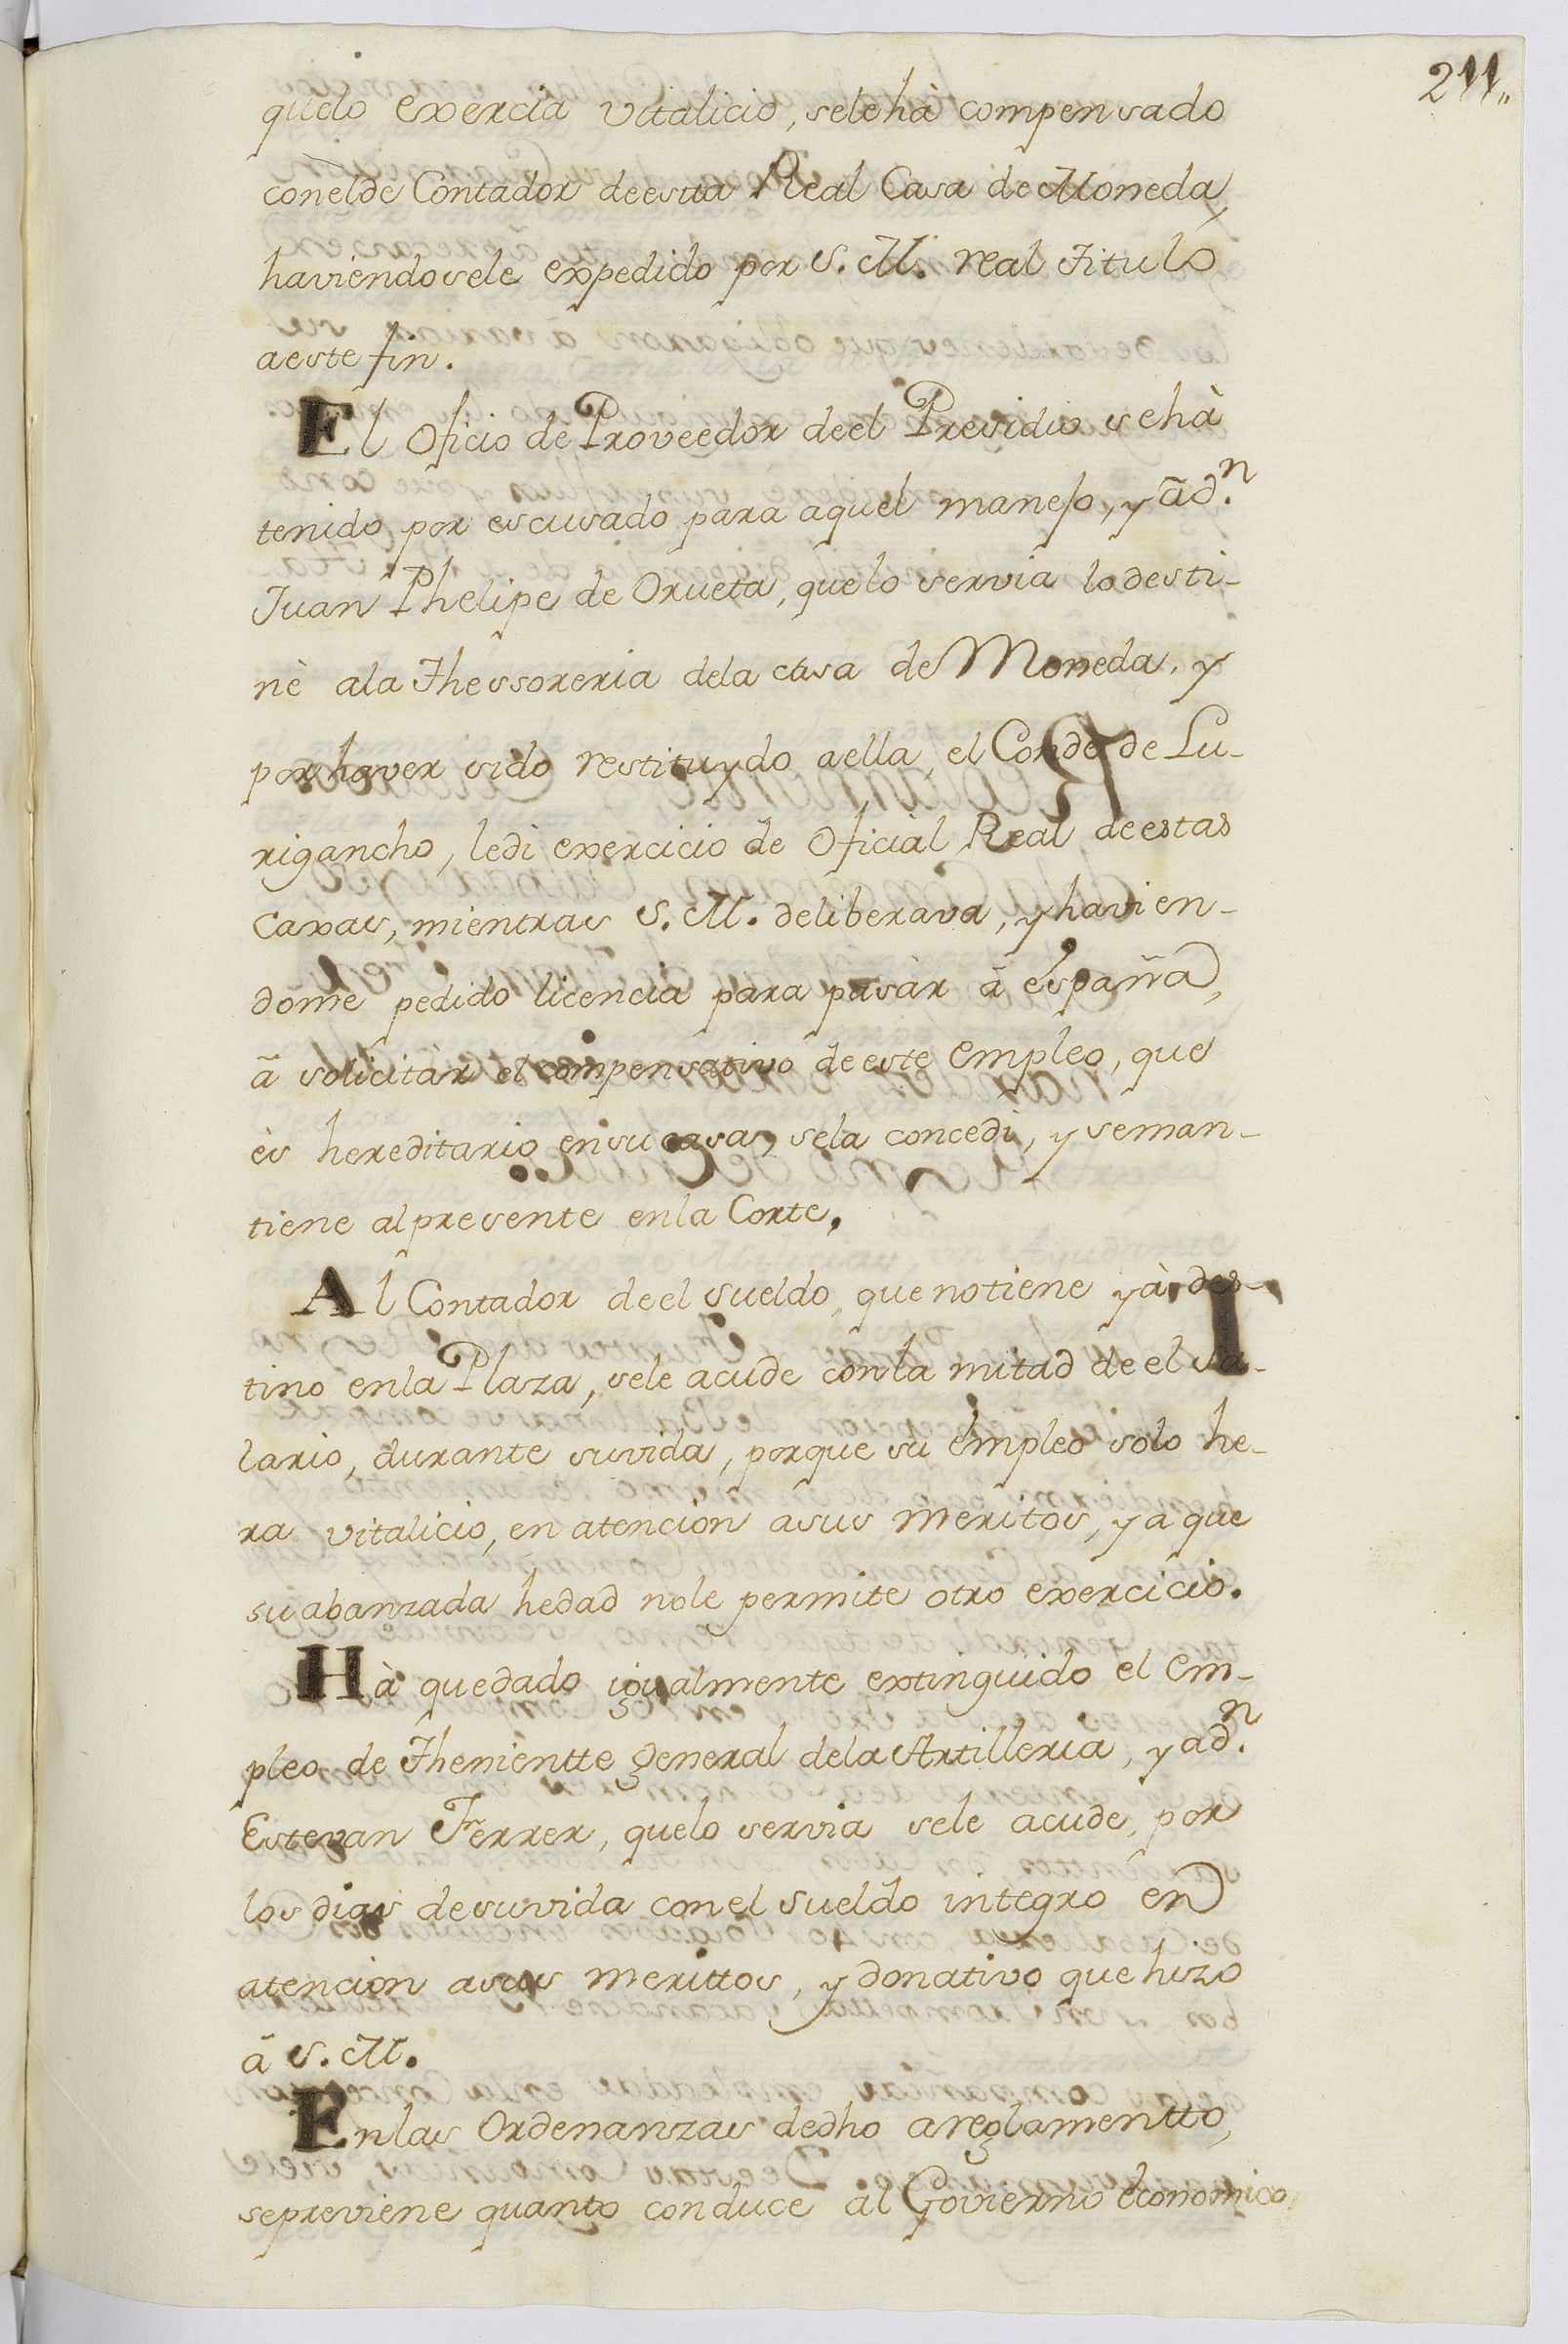 211,,
quelo exercia vitalicio, selehà compensado
conelde Contador deesta Real Casa de Moneda,
haviendosele expedido por S. M. real Titulo
aeste fin.
El Oficio de Proveedor deel Presidio sehà
tenido por escusado para aquel manejo, y ãd.n
Juan Phelipe de Orueta, quelo servia lodesti-
nè ala Thessoreria dela casa de Moneda, y
por haver sido restituydo aella, el Conde de Lu-
rigancho, ledi exercicio de Oficial Real deestas
Caxas, mientras S. M. deliberava, y havien-
dome pedido licencia para pasàr ã España,
ã solicitàr el compensativo deeste empleo, que
ès hereditario ensu casa, sela concedi, y seman-
tiene alpresente enla Corte.
Al Contador deel Sueldo, que notiene yà des-
tino enla Plaza, sele acude conla mitad de el sa-
lario, durante suvida, porque su empleo solo he-
ra vitalicio, en atencion asus meritos, y a que
su abanzada hedad nole permite otro exercicio.
Hà quedado igualmente extinguido el em-
pleo de Thenientte general dela Artilleria, y ad.n
Estevan Ferrer, quelo servia sele acude, por
los dias desuvida conel Sueldo integro en
atencion asus merittos, y donativo que hizo
ã S. M.
Enlas Ordenanzas dedho areglamentto,
sepreviene quanto conduce al Govierno economico,